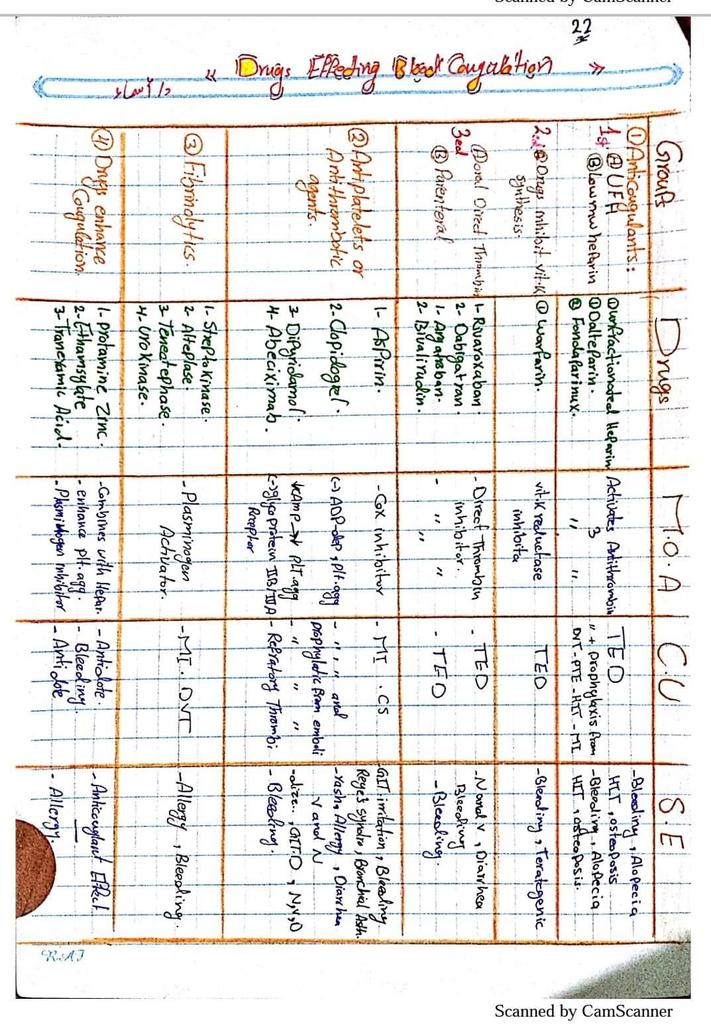 22
" Drugs Effecting Blood Cougalation "
Group
Drugs
M.O.A
C.U
S.E
① Anticoagulants:
1st Ⓐ UFH
Ⓑ Lowmw heparin
① unfractionated Heparin
① Dalteparin.
② Fondaparinux.
Activates Antithrombin
3
" "
TED
" + prophylaxis from
DVT-PTE-HIT-MI
-Bleeding, Alopecia
HIT, osteoposis
-Bleeding, Alopecia
HIT, osteoposis.
2nd Ⓐ Drugs inhibit vit-K
synthesis.
① Warfarin.
vit-K reductase
inhibits
TED
-Bleeding, Teratogenic
3ed Ⓐ Oral Direct Thrombin
Ⓑ Parenteral
1- Rivaroxaban.
2- Dabigatran.
1- Argatroban.
2- Bivalirudin.
- Direct Thrombin
inhibitor.
- " "
"
- TED
- TED
- N and V, Diarrhea
Bleeding
- Bleeding.
② Antiplatelets or
Antithrombotic
agents.
1- Aspirin.
2- Clopidogel.
3- Dipyridamol.
4- Abeciximab.
- Cox inhibitor
(-) ADP-dep, plt-agg
↓cAMP → plt-agg
(-) glycoprotein IIB/IIIA
Receptor
- MI . CS
- " , " and
prophylatic from emboli
- " " "
- Refratory Thrombi
-GIT irritation, Bleeding
Reye's syndro, Bronchial Asth.
-rash, Allergy, Diarrhea
V and N
-dize., GIT.D, N,v,D
- Bleeding.
③ Fibrinolytics.
1- Streptokinase.
2- Alteplase.
3- Tenectephase.
4- Urokinase.
- Plasminogen
Activator.
- MI. DVT
- Allergy, Bleeding.
④ Drugs enhance
Coagulation.
1- Protamine Zinc.
2- Ethamsylate
3- Tranexamic Acid.
-Combines with Hepar.
- enhance plt.agg.
- Plasminogen inhibitor
- Antidote.
- Bleeding.
- Antidote
- Anticoaglant Effect
- Allergy.
R.A.J
Scanned by CamScanner
Scanned by CamScanner